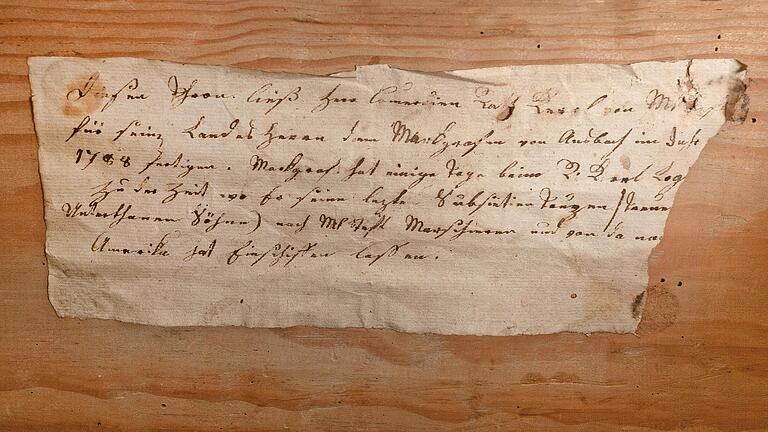 Diesen Thron ließ Herr Comercien Rath Perel von M
für seine Landes Herrn dem Markgrafen von Ansbach im Jahr
1788 fertigen. Markgraf hat einige Tage beim P. Perl Log
zu der Zeit wo Er seine lezte Subsidien Truppen (
Unterthanen Söhne) nach Msteft Marschieren und von da na
Amerika hat Einschiffen lassen.